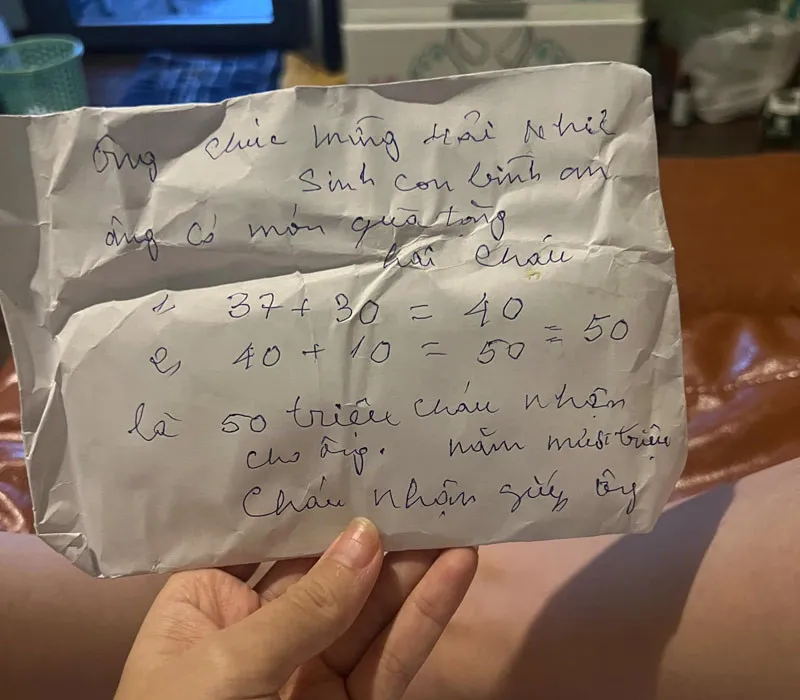 Ông chúc mừng Hải Nhi
Sinh con bình an
ông có món quà tặng
hai Cháu
1, 37 + 30 = 40
2, 40 + 10 = 50 = 50
là 50 triệu cháu nhận
cho ông. năm mươi triệu
Cháu nhận giúp ông